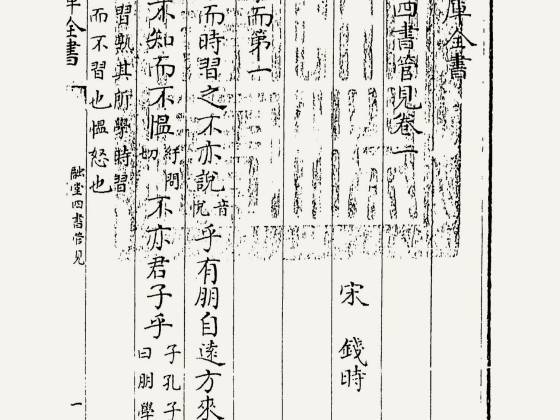 庫全書
四書管見卷一
宋 錢時
而第一
而時習之不亦說音悅乎有朋自遠方來
不知而不慍紆問切不亦君子乎子孔子曰朋學
習熟其所學時習
而不習也慍怒也
庫全書
融堂四書管見
一